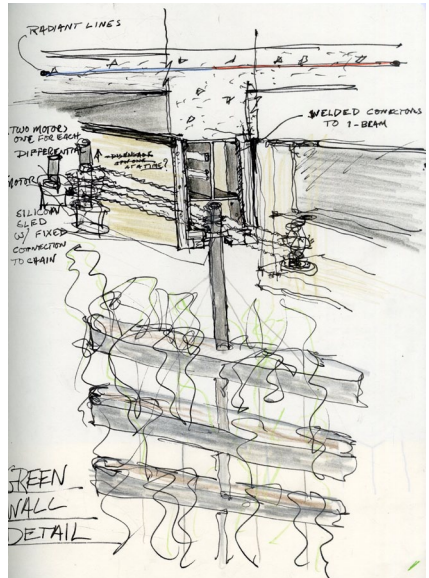 RADIANT LINES
WELDED CONECTORS
TO I-BEAM
TWO MOTORS
ONE FOR EACH
DIFFERENTIAL
AT A TIME?
MOTOR
SILICON
SLED
W/ FIXED
CONNECTION
TO CHAIN
GREEN
WALL
DETAIL